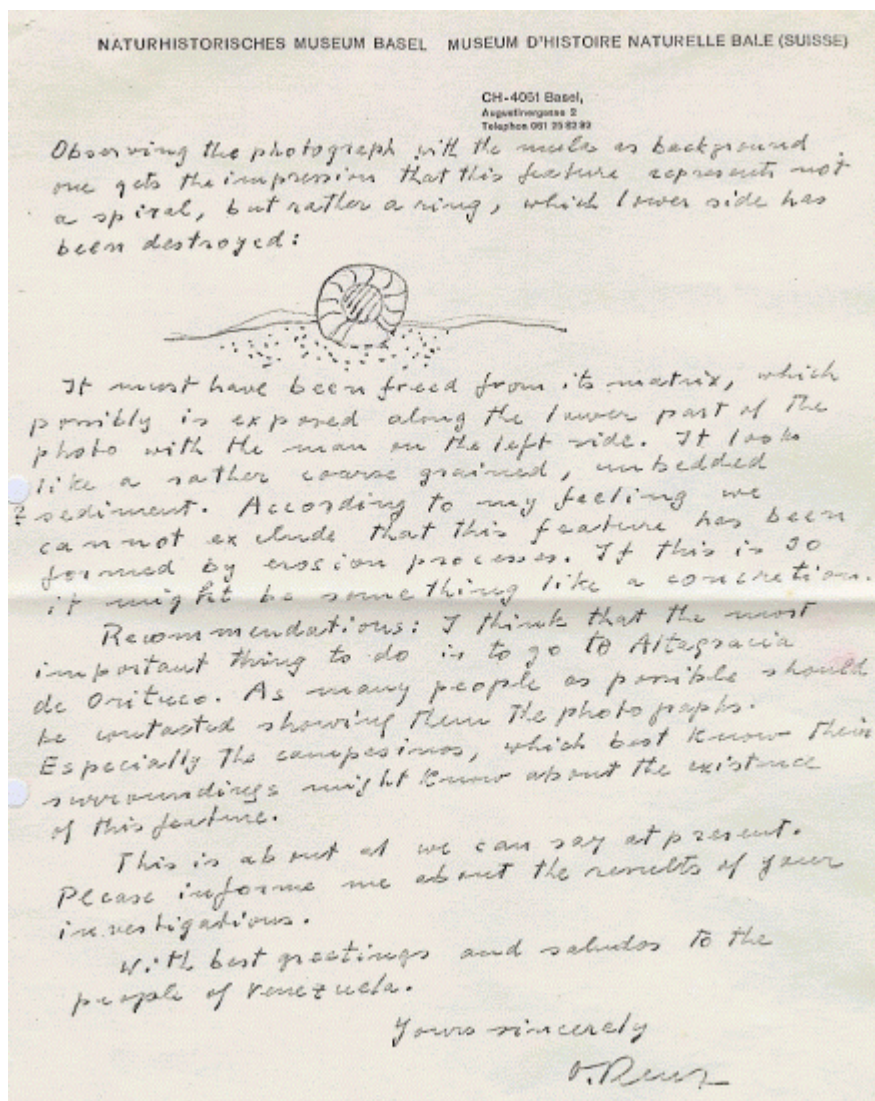 NATURHISTORISCHES MUSEUM BASEL MUSEUM D'HISTOIRE NATURELLE BALE (SUISSE)
CH-4051 Basel,
Augustinergasse 2
Telephon 061 25 82 82
Observing the photograph with the mula as background
one gets the impression that this feature represents not
a spiral, but rather a ring, which lower side has
been destroyed:
It must have been freed from its matrix, which
possibly is exposed along the lower part of the
photo with the man on the left side. It looks
like a rather coarse grained, unbedded
? sediment. According to my feeling we
cannot exclude that this feature has been
formed by erosion processes. If this is so
it might be something like a concretion.
Recommendations: I think that the most
important thing to do is to go to Altagracia
de Orituco. As many people as possible should
be contacted showing them the photographs.
Especially the campesinos, which best know their
surroundings might know about the existence
of this feature.
This is about at we can say at present.
Please informe me about the results of your
investigations.
With best greetings and saludos to the
people of Venezuela.
Yours sincerely